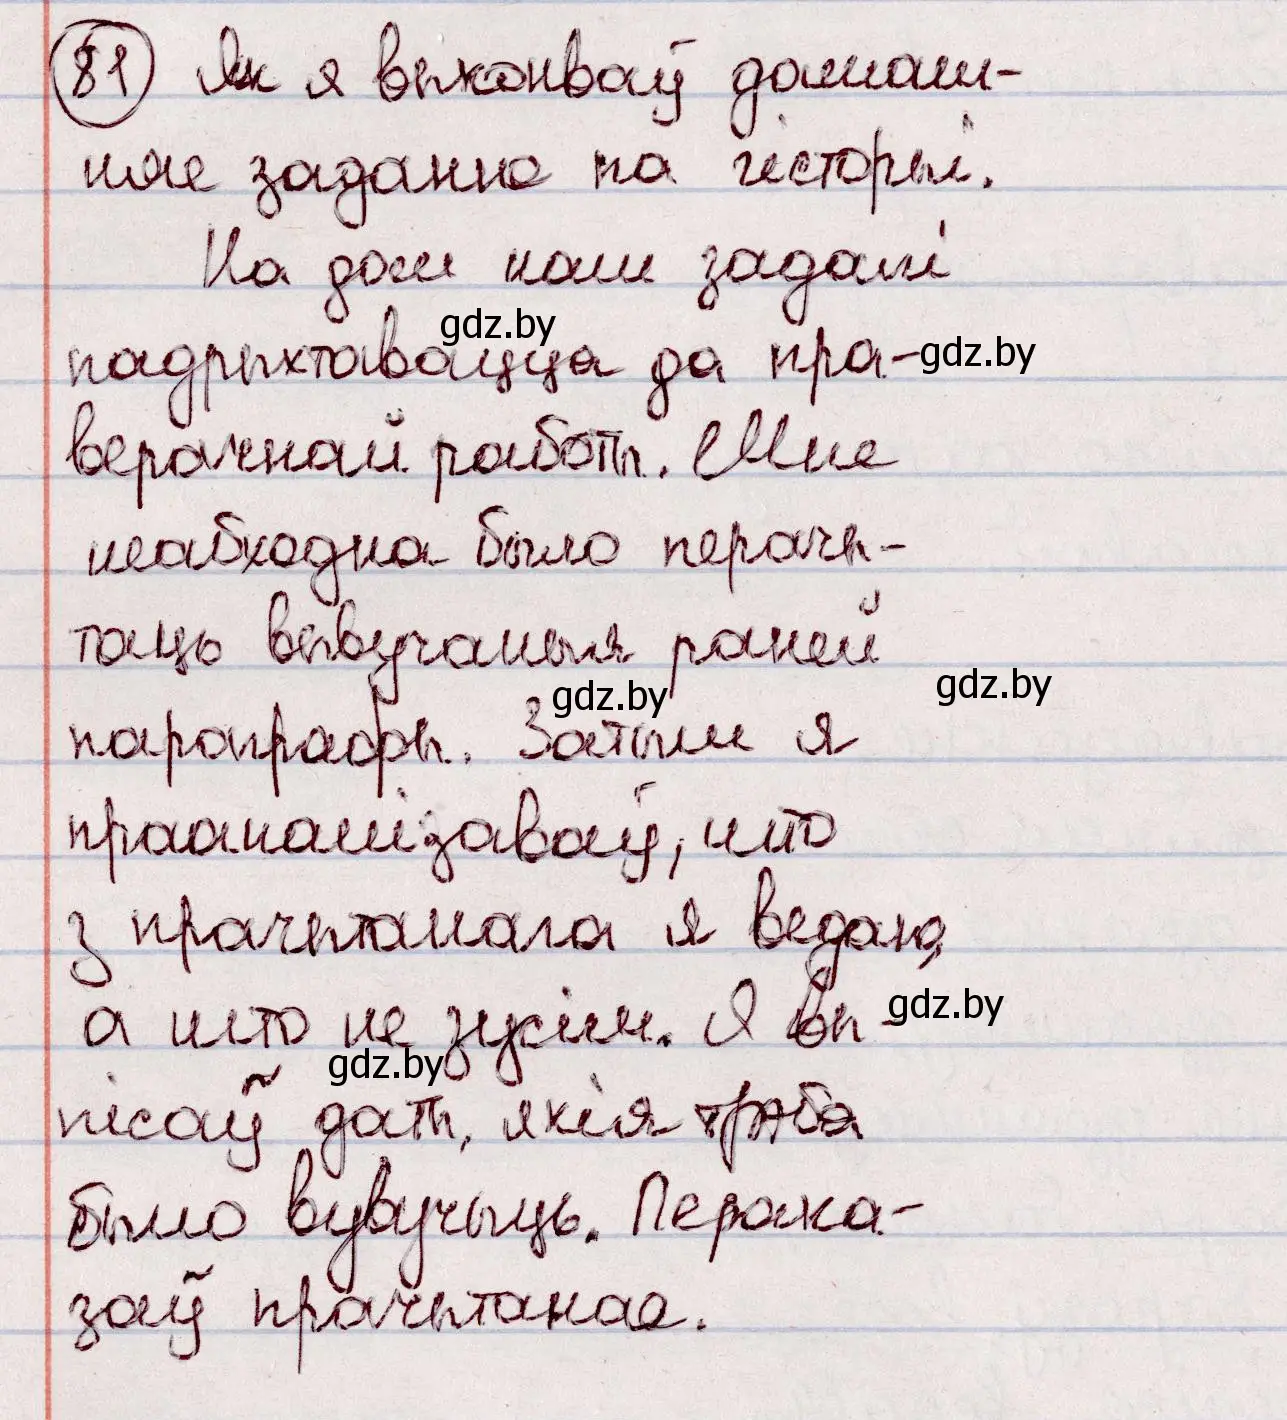 81 Як я выконваў дамаш-
няе заданне па гісторыі.
На дом нам задалі
gdz.by
падрыхтавацца да пра-
gdz.by
верачнай работы. Мне
неабходна было перачы-
таць вывучаныя раней
gdz.by
gdz.by
параграфы. Затым я
прааналізаваў, што
з прачытанага я ведаю,
а што не зусім. Я вы-
gdz.by
gdz.by
пісаў даты, якія трэба
было вувучыць. Перака-
заў прачытанае.